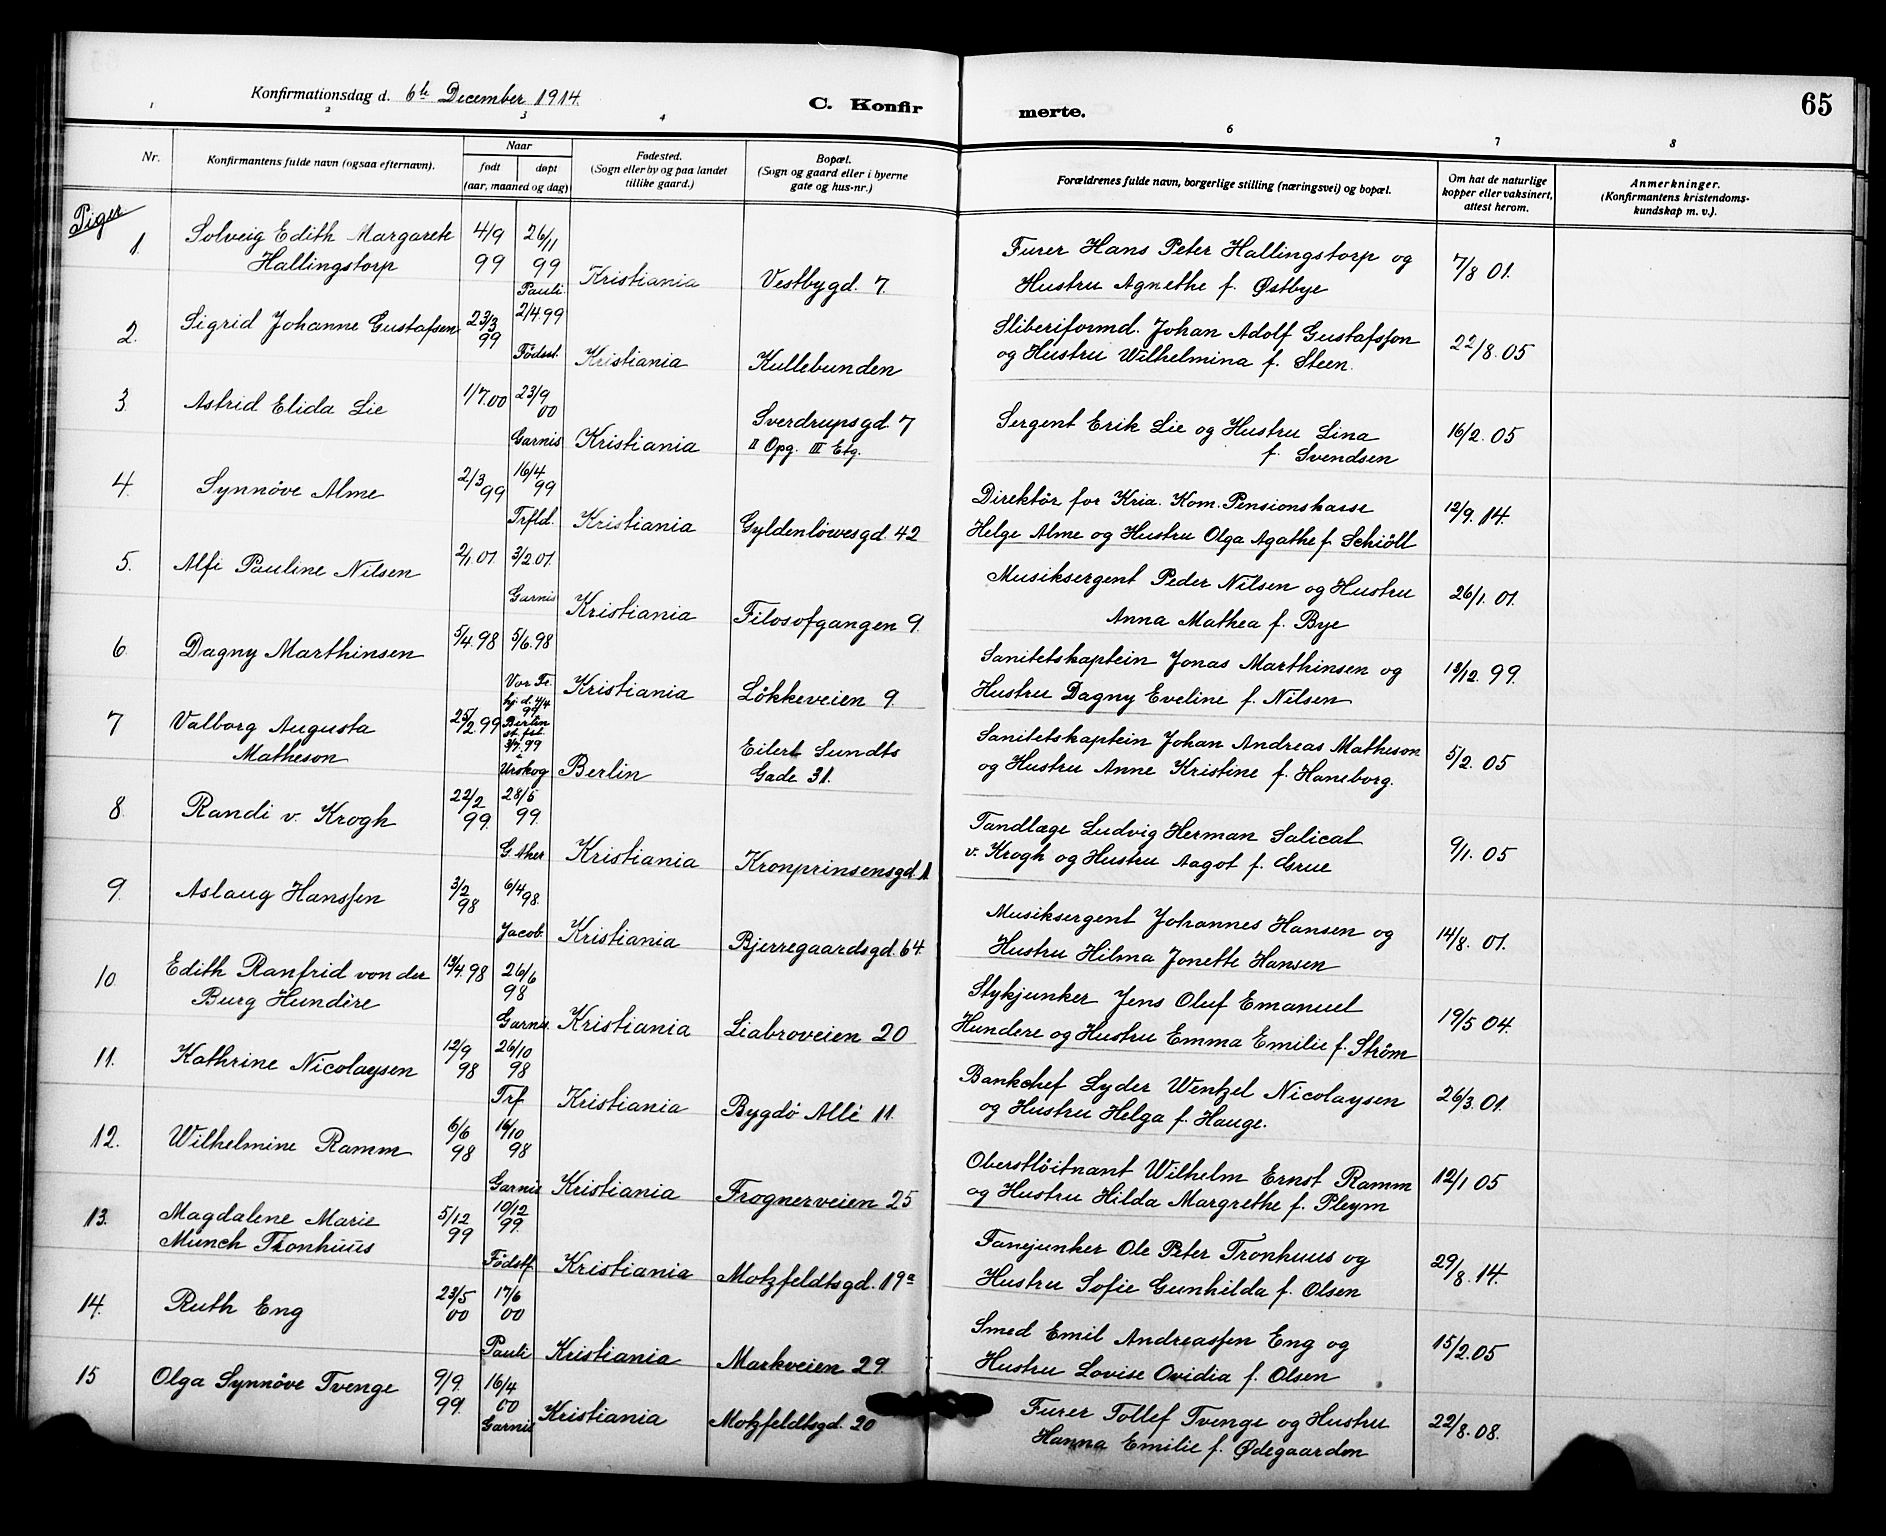 Konfirmationsdag d. 6te December 1914.
C. Konfir
merte.
65
1 2 3 4 6 7 8
Nr.
Konfirmantens fulde navn (ogsaa efternavn).
Naar
født døpt
(aar, maaned og dag)
Fødested.
(Sogn eller by og paa landet
tillike gaard.)
Bopæl.
(Sogn og gaard eller i byerne
gate og hus-nr.)
Forældrenes fulde navn, borgerlige stilling (næringsvei) og bopæl.
Om hat de naturlige
kopper eller vaksinert,
attest herom.
Anmerkninger.
(Konfirmantens kristendoms-
kundskap m. v.).
Piger
1 Solveig Edith Margarete
Hallingstorp
4/9 99
26/11 99 Pauli.
Kristiania
Vestbygd. 7.
Furer Hans Peter Hallingstorp og
Hustru Agnethe f. Østbye
7/8 01.
2. Sigrid Johanne Gustafsen
23/3 99
2/4.99 Fødsst.
Kristiania
Kullebunden
Sliberiformd. Johan Adolf Gustafsson
og Hustru Wilhelmina f. Steen.
22/8.05
3. Astrid Elida Lie
1/7.00
23/9 00 Garnis
Kristiania
Sverdrupsgd. 7
II Opg. III Etg.
Sergent Erik Lie og Hustru Lina
f. Svendsen
16/2.05
4. Synnöve Alme
2/3 99
16/4 99 Trfld.
Kristiania
Gyldenlöwesgd. 42
Direktör for Kria. Kom. Pensionskasse
Helge Alme og Hustru Olga Agathe f. Schiöll
12/9.14.
5. Alfi Pauline Nilsen
2/1.01
3/2.01. Garnis
Kristiania
Filosofgangen 9.
Musiksergent Peder Nilsen og Hustru
Anna Mathea f. Bye
26/1.01.
6 Dagny Marthinsen
5/4.98
5/6.98 Vor Fr.
Kristiania
Lökkeveien 9
Sanitetskaptein Jonas Marthinsen og
Hustru Dagny Eveline f. Nilsen
13/12.99.
7 Valborg Augusta
Matheson
25/2.99
hj. d. 4/4 99
Berlin
st. fst.
3/7.99
i
Urskog
Berlin
Eilert Sundts
Gade 31.
Sanitetskaptein Johan Andreas Matheson
og Hustru Anne Kristine f. Haneborg.
5/2.05
8. Randi v. Krogh
22/2 99.
28/5 99. G. Aker
Kristiania
Kronprinsensgd. 1.
Tandlæge Ludvig Herman Salicat
v. Krogh og Hustru Aagot f. Grue
9/1.05
9. Aslaug Hanssen
3/2 98
6/4 98. Jacob.
Kristiania
Bjerregaardsgd. 64.
Musiksergent Johannes Hansen og
Hustru Hilma Jonette Hansen
14/8.01.
10. Edith Ranfrid von der
Burg Hundére
13/4.98
26/6 98 Garnis.
Kristiania
Liabroveien 20
Stykjunker Jens Oluf Emanuel
Hundere og Hustru Emma Emilie f. Strøm
19/5 04.
11. Kathrine Nicolaysen
12/9 98
26/10 98 Trf.
Kristiania
Bygdö Allé 11.
Bankchef Lyder Wentzel Nicolaysen
og Hustru Helga f. Hauge.
26/3.01.
12. Wilhelmine Ramm
6/6 98
16/10 98 Garnis
Kristiania
Frognerveien 25
Oberstlöitnant Wilhelm Ernst Ramm
og Hustru Hilda Margrethe f. Pleym
12/1 05
13. Magdalene Marie
Münch Tronhuus
5/12 99
10/12 99. Födstf.
Kristiania
Motzfeldtsgd. 19a
Fanejunker Ole Peter Tronhuus og
Hustru Sofie Gunhilda f. Olsen
29/8.14.
14. Ruth Eng
23/5 00
17/6 00 Pauli
Kristiania
Markveien 29.
Smed Emil Andreassen Eng og
Hustru Lovise Ovidia f. Olsen
15/2.05
15 Olga Synnöve Tvenge
9/9. 99.
16/4 00 Garnis
Kristiania
Motzfeldtsgd. 20
Furer Tollef Tvenge og Hustru
Hanna Emilie f. Ødegaarden
22/8.08.